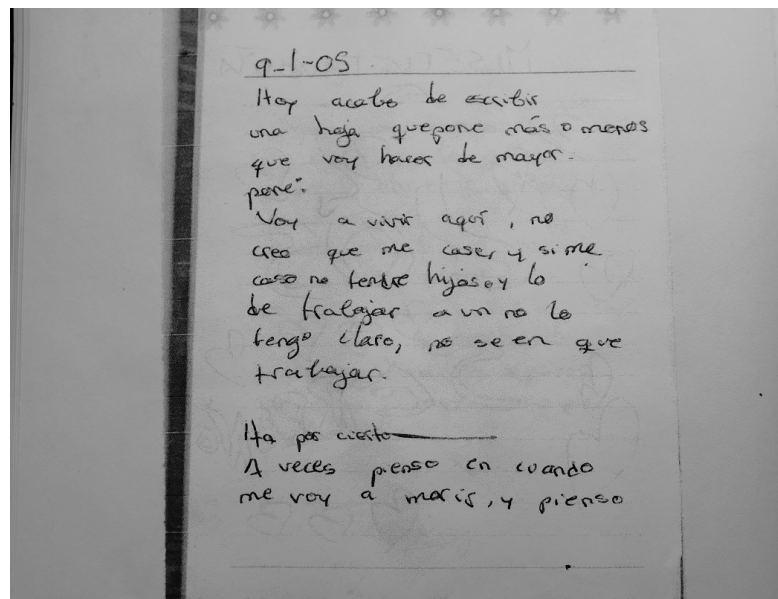 9-1-05
Hoy acabo de escribir
una hoja que pone más o menos
que voy hacer de mayor.
pone:
Voy a vivir aquí, no
creo que me case, y si me
caso no tendre hijos y lo
de trabajar a un no lo
tengo claro, no se en que
trabajar.
Ha por cierto
A veces pienso en cuando
me voy a morir, y pienso